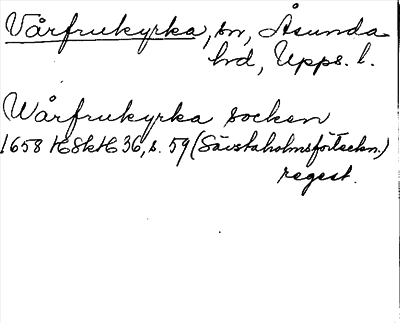 Vårfrukyrka, sn, Åsunda
hd, Upps. l.
Wårfrukyrka socken
1658 HSkH 36, s. 59 (Sävstaholmsförteckn.)
regest.